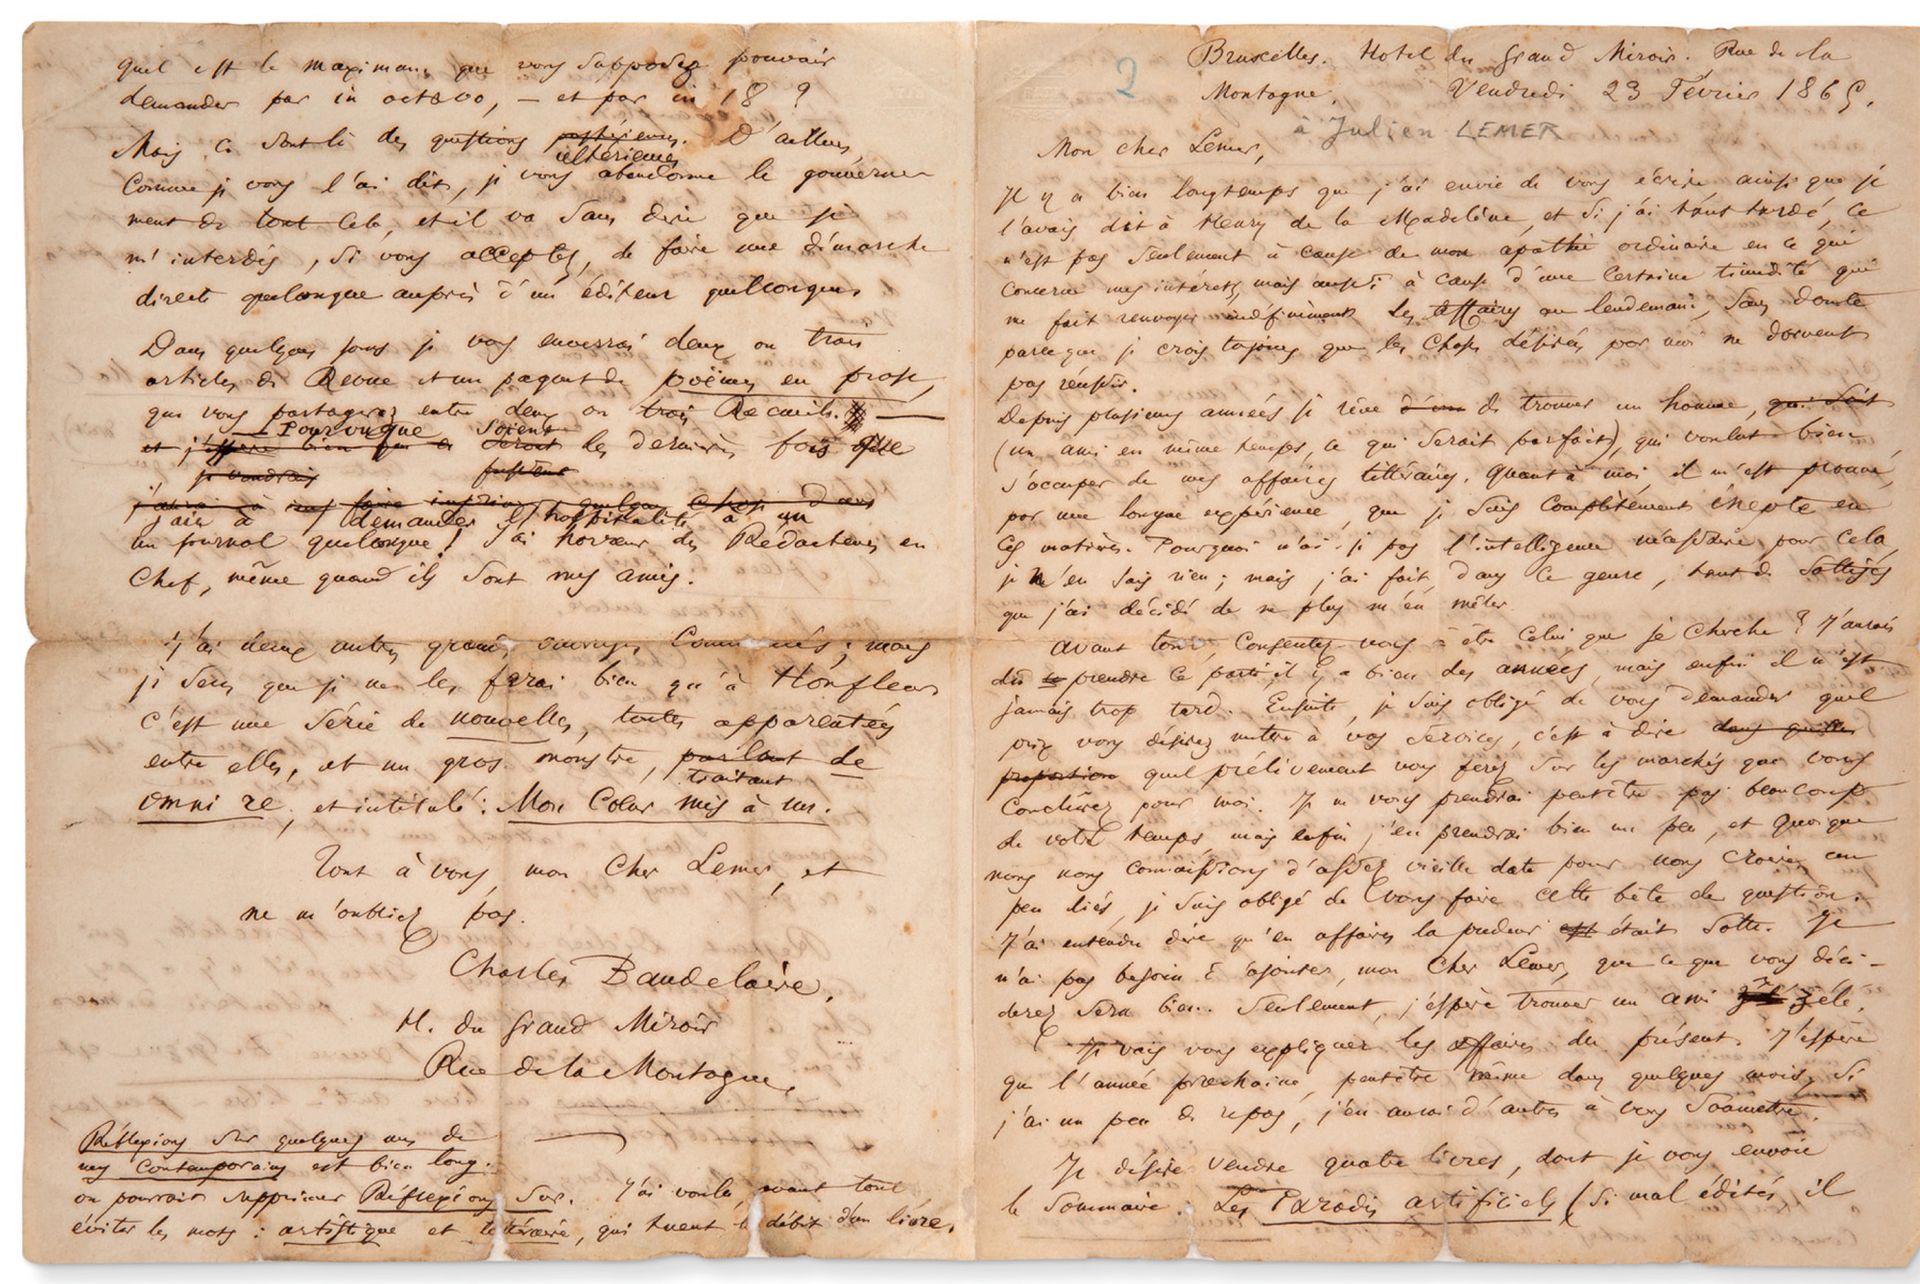 quel est le maximum que vous supposez pouvoir
demander par in octavo, — et par in 18 ?
Mais ce sont là des questions postérieures. D'ailleurs,
ultérieures
comme je vous l'ai dit, je vous abandonne le gouverne-
ment de tout cela, et il va sans dire que je
m'interdis, si vous acceptez, de faire une démarche
directe quelconque auprès d'un éditeur quelconque.
Dans quelques jours je vous enverrai deux ou trois
articles de Revue et un paquet de poëmes en prose,
que vous partagerez entre deux ou trois Recueils. —
Pourvu que soient
et j'espère bien que ce seront les dernières fois que
je voudrais fussent
j'aurai à faire insérer quelque chose dans
j'aie à demander l'hospitalité à un
un journal quelconque! J'ai horreur des Rédacteurs en
chef, même quand ils sont mes amis.
J'ai deux autres grands ouvrages commencés ; mais
je sens que je ne les ferai bien qu'à Honfleur
c'est une série de nouvelles, toutes apparentées
entre elles, et un gros monstre, parlant de
traitant
omni re, et intitulé : Mon Cœur mis à nu.
Tout à vous, mon cher Lemer, et
ne m'oubliez pas.
Charles Baudelaire.
H. du Grand Miroir
Rue de la Montagne.
Réflexions sur quelques uns de
mes contemporains est bien long.
on pourrait supprimer Réflexions sur. J'ai voulu, avant tout
éviter les mots : artistique et littéraire, qui tuent le débit d'un livre.
2
Bruxelles. Hotel du Grand Miroir. Rue de la
Montagne. Vendredi 23 Février 1865.
à Julien LEMER
Mon cher Lemer,
Il y a bien longtemps que j'ai envie de vous écrire, ainsi que je
l'avais dit à Henry de la Madelène, et si j'ai tant tardé, ce
n'est pas seulement à cause de mon apathie ordinaire en ce qui
concerne mes intérêts, mais aussi à cause d'une certaine timidité qui
me fait renvoyer indéfiniment les affaires au lendemain, sans doute
parce que je crois toujours que les choses désirées par moi ne doivent
pas réussir.
Depuis plusieurs années je rêve d'un de trouver un homme, qui soit
(un ami en même temps, ce qui serait parfait), qui voulut bien
s'occuper de mes affaires littéraires. Quant à moi, il m'est prouvé,
par une longue expérience, que je suis complètement inepte en
ces matières. Pourquoi n'ai-je pas l'intelligence nécessaire pour cela,
je n'en sais rien ; mais j'ai fait, dans ce genre, tant de sottises
que j'ai décidé de ne plus m'en mêler.
Avant tout, consentez-vous à être celui que je cherche ? J'aurais
dû prendre ce parti, il y a bien des années, mais enfin il n'est
jamais trop tard. Ensuite, je suis obligé de vous demander quel
prix vous désirez mettre à vos services, c'est à dire dans quelle
proportion quel prélèvement vous ferez sur les marchés que vous
conclurez pour moi. Je ne vous prendrai peutêtre pas beaucoup
de votre temps, mais enfin j'en prendrai bien un peu, et quoique
nous nous connaissions d'assez vieille date pour nous croire un
peu liés, je suis obligé de vous faire cette bête de question.
J'ai entendu dire qu'en affaires la pudeur est était sotte. Je
n'ai pas besoin d'ajouter, mon cher Lemer, que ce que vous déci-
derez sera bien. Seulement, j'espère trouver un ami zélé.
Je vais vous expliquer les affaires du présent. J'espère
que l'année prochaine, peutêtre même dans quelques mois, si
j'ai un peu de repos, j'en aurai d'autres à vous soumettre.
Je désire vendre quatre livres, dont je vous envoie
le sommaire. Les Paradis artificiels (si mal édités, il